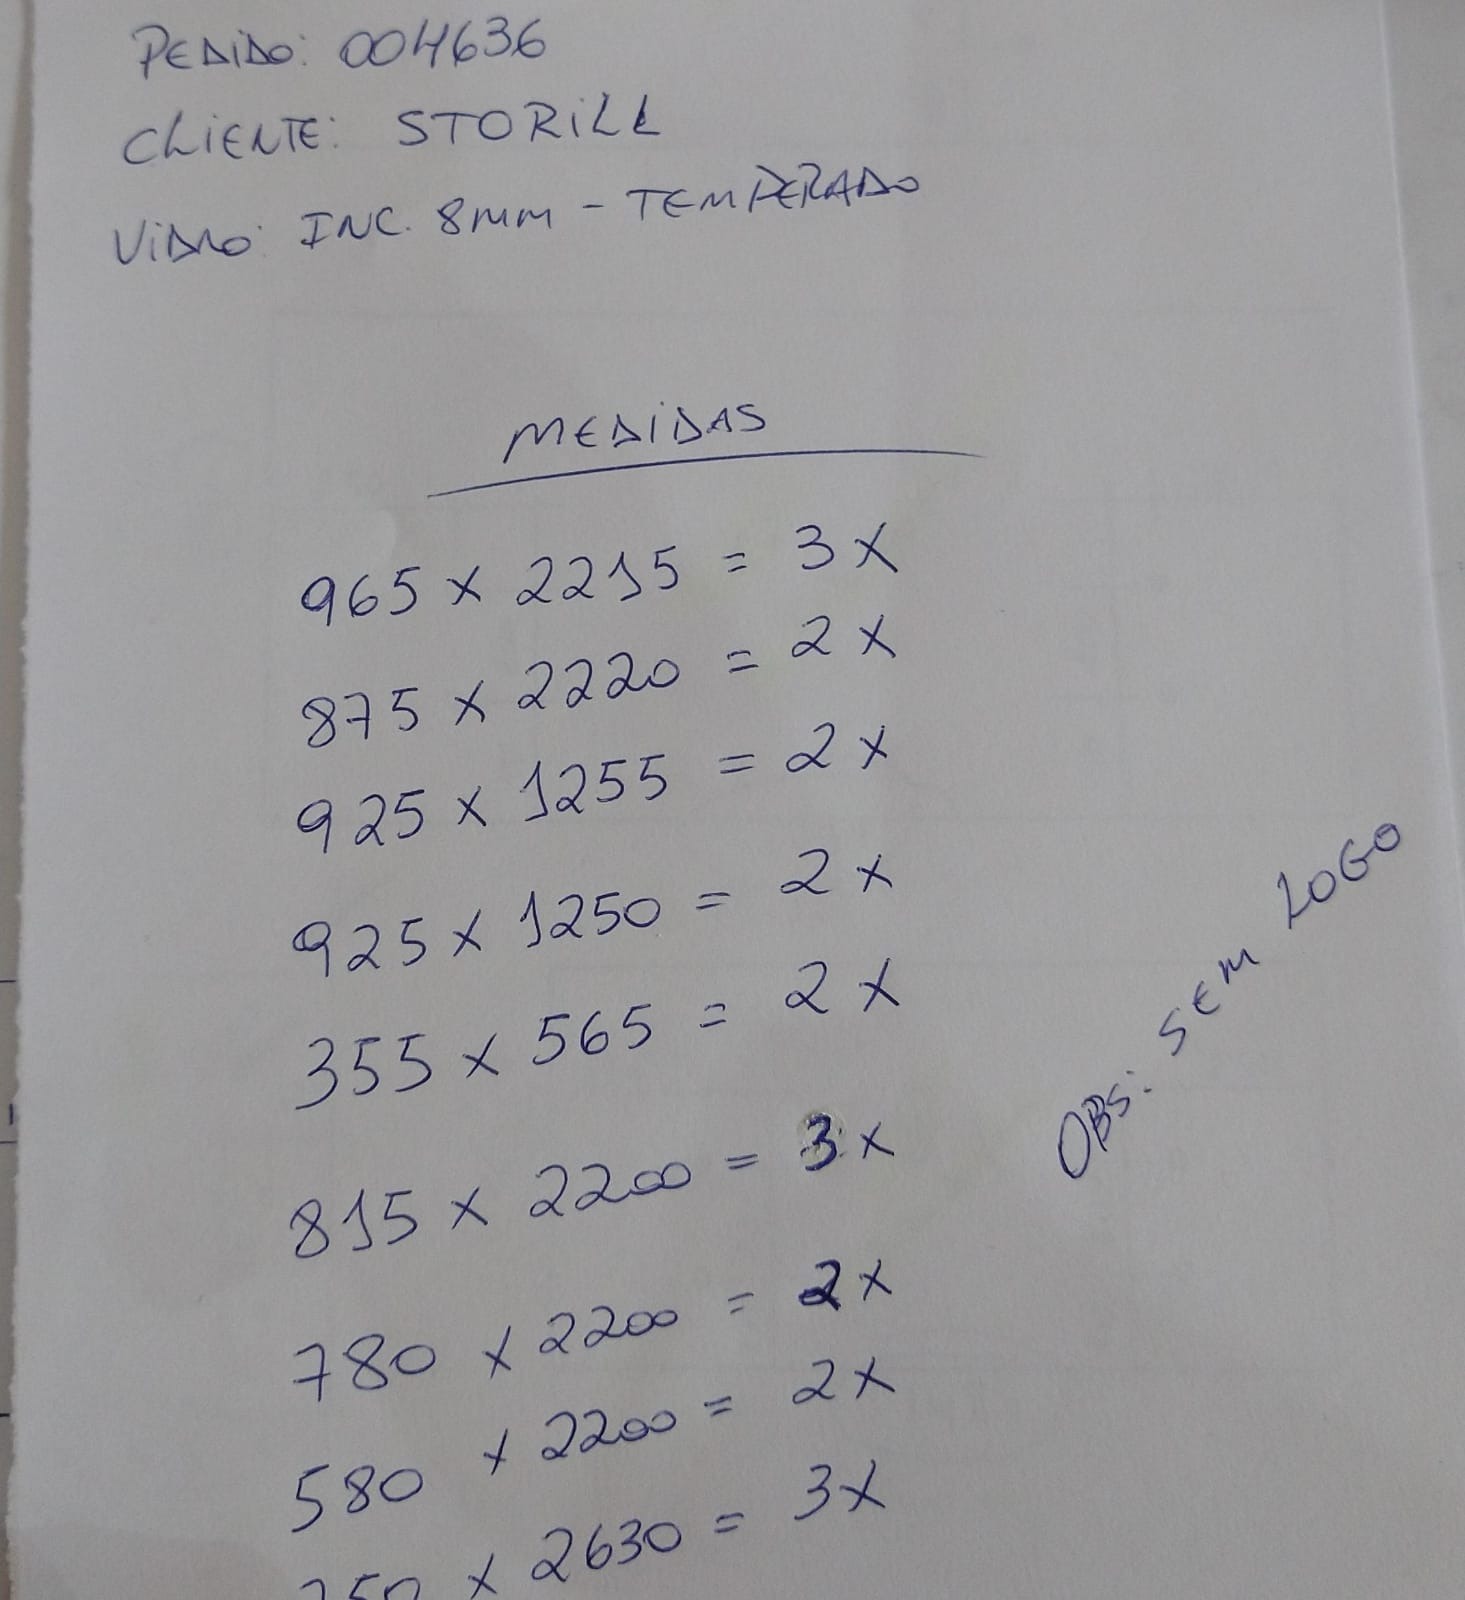 PEDIDO: 004636
CLIENTE: STORILL
VIDRO: INC. 8MM - TEMPERADO
MEDIDAS
965 x 2215 = 3x
875 x 2220 = 2x
925 x 1255 = 2x
925 x 1250 = 2x
355 x 565 = 2x
OBS: SEM LOGO
815 x 2200 = 3x
780 x 2200 = 2x
580 x 2200 = 2x
x 2630 = 3x